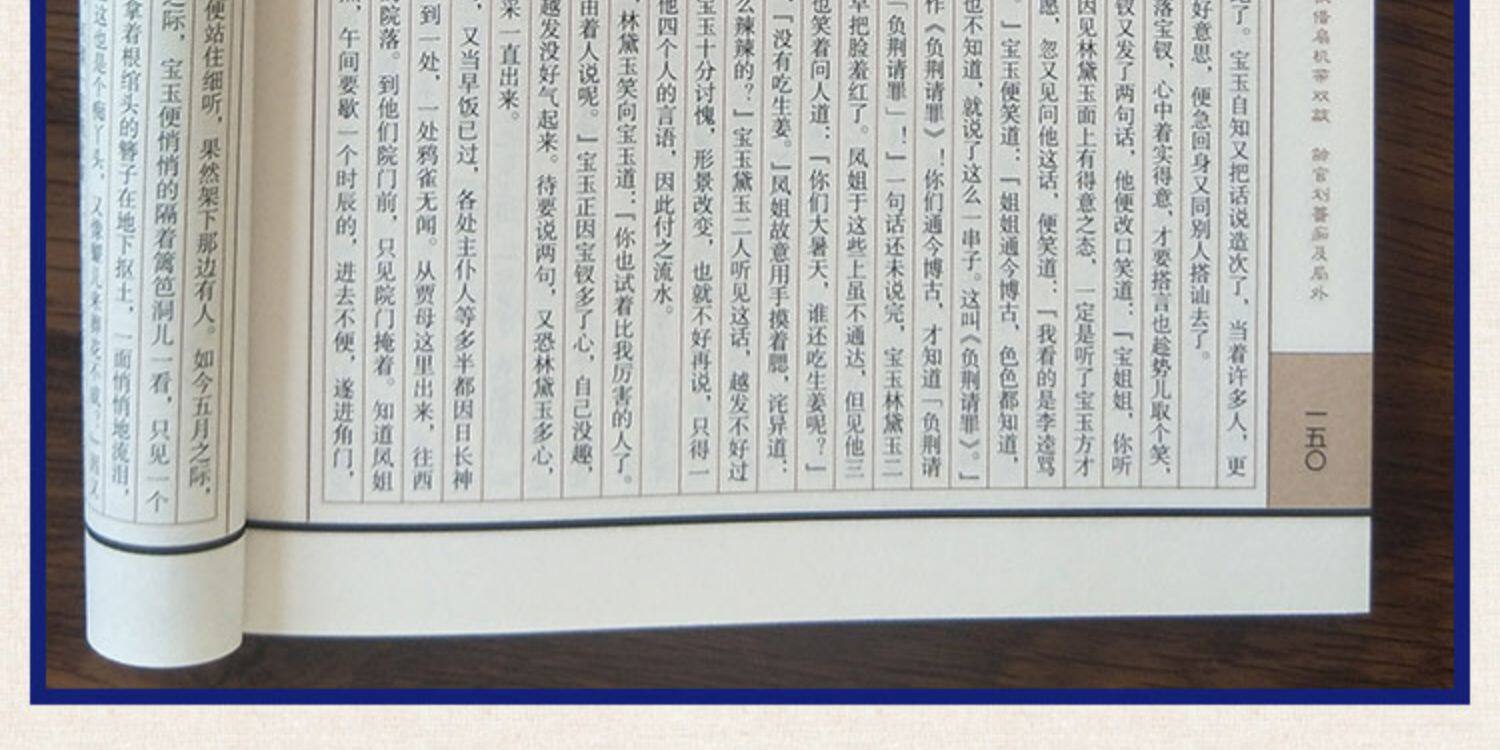 借扇机带双敲 龄官划蔷痴及局外
一五〇
了。宝玉自知又把话说造次了，当着许多人，更
好意思，便急回身又同别人搭讪去了。
落宝钗，心中着实得意，才要搭言也趁势儿取个笑，
钗又发了两句话，他便改口笑道：「宝姐姐，你听
因见林黛玉面上有得意之态，一定是听了宝玉方才
愿，忽又见问他这话，便笑道：「我看的是李逵骂
。」宝玉便笑道：「姐姐通今博古，色色都知道，
也不知道，就说了这么一串子。这叫《负荆请罪》。」
作《负荆请罪》！你们通今博古，才知道「负荆请
「负荆请罪」！」一句话还未说完，宝玉林黛玉二
早把脸羞红了。凤姐于这些上虽不通达，但见他三
也笑着问人道：「你们大暑天，谁还吃生姜呢？」
，「没有吃生姜。」凤姐故意用手摸着腮，诧异道：
么辣辣的？」宝玉黛玉二人听见这话，越发不好过
宝玉十分讨愧，形景改变，也就不好再说，只得一
他四个人的言语，因此付之流水。
，林黛玉笑向宝玉道：「你也试着比我厉害的人了。
由着人说呢。」宝玉正因宝钗多了心，自己没趣，
越发没好气起来。待要说两句，又恐林黛玉多心，
采一直出来。
，又当早饭已过，各处主仆人等多半都因日长神
到一处，一处鸦雀无闻。从贾母这里出来，往西
院落。到他们院门前，只见院门掩着。知道凤姐
，午间要歇一个时辰的，进去不便，遂进角门，
便站住细听，果然架下那边有人。如今五月之际，
之际，宝玉便悄悄的隔着篱笆洞儿一看，只见一个
拿着根绾头的簪子在地下抠土，一面悄悄地流泪，
这也是个痴丫头，又像颦儿来葬花不成？」因又